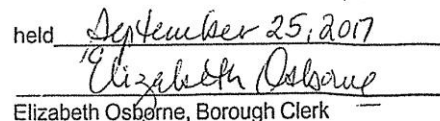 held September 25, 2017
Elizabeth Osborne
Elizabeth Osborne, Borough Clerk